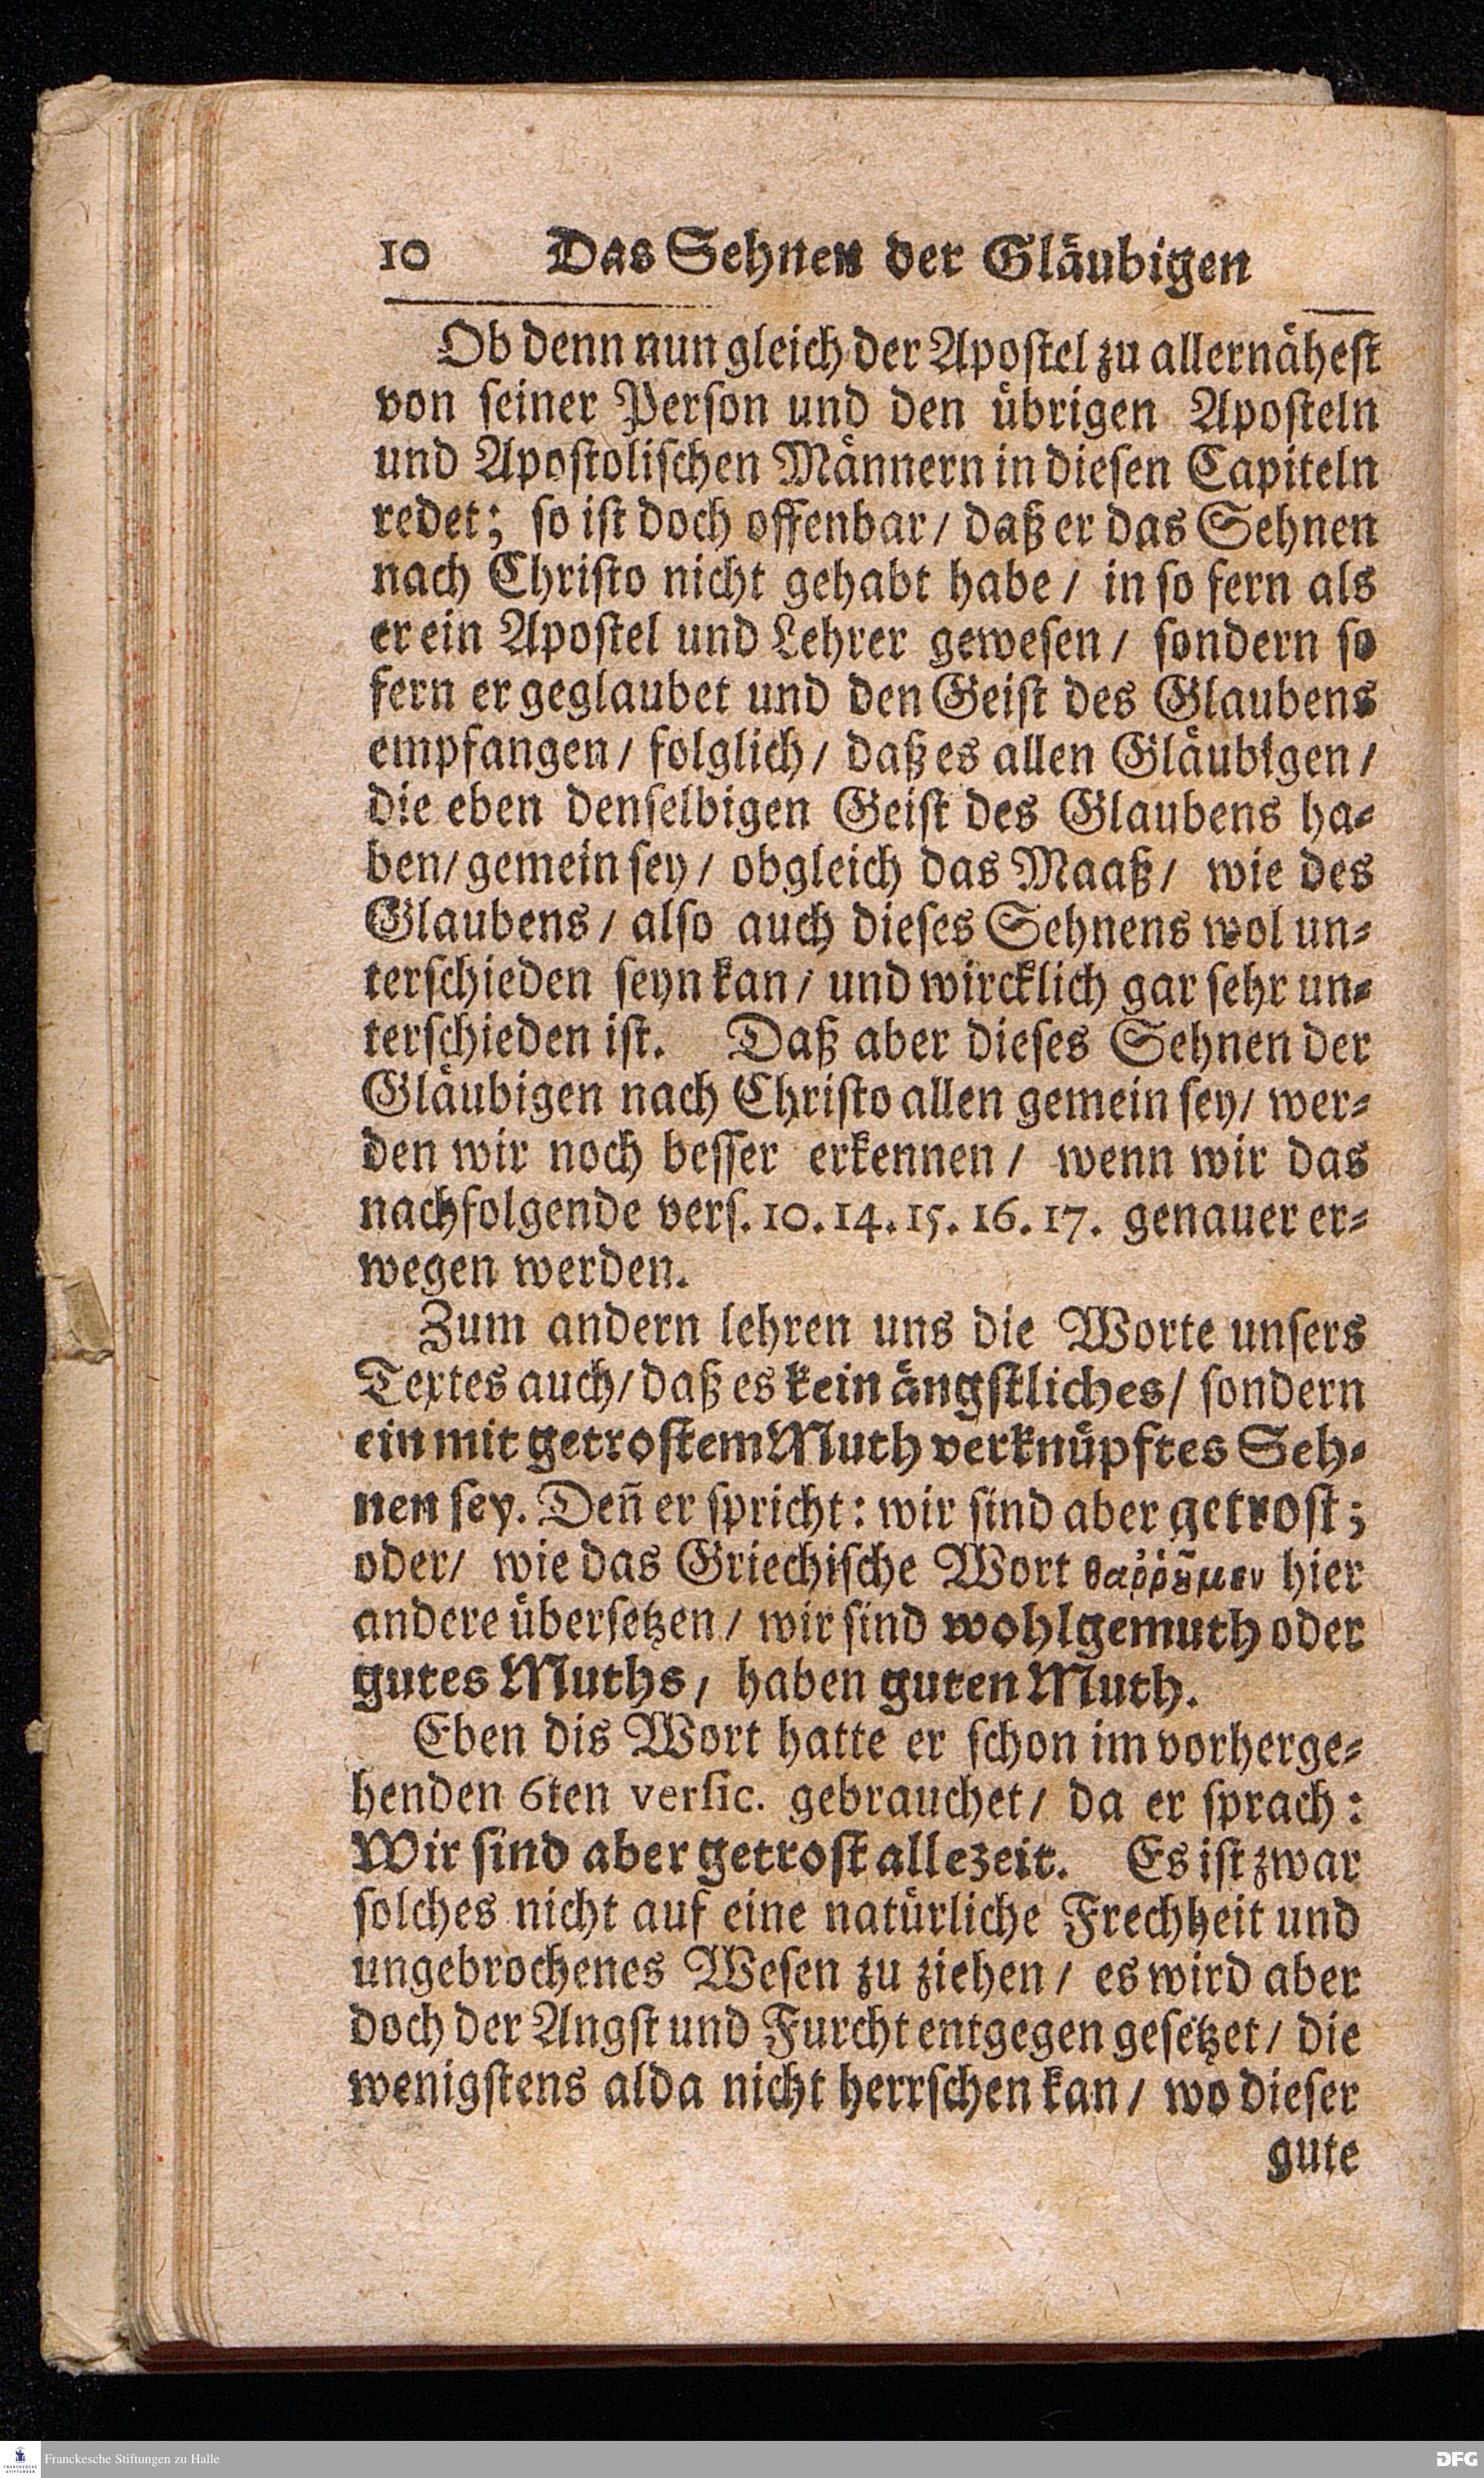 10 Das Sehnen der Gläubigen
Ob denn nun gleich der Apostel zu allernähest
von seiner Person und den übrigen Aposteln
und Apostolischen Männern in diesen Capiteln
redet; so ist doch offenbar/ daß er das Sehnen
nach Christo nicht gehabt habe/ in so fern als
er ein Apostel und Lehrer gewesen/ sondern so
fern er geglaubet und den Geist des Glaubens
empfangen/ folglich/ daß es allen Gläubigen/
die eben denselbigen Geist des Glaubens ha-
ben/ gemein sey/ obgleich das Maaß/ wie des
Glaubens/ also auch dieses Sehnens wol un-
terschieden seyn kan/ und wircklich gar sehr un-
terschieden ist. Daß aber dieses Sehnen der
Gläubigen nach Christo allen gemein sey/ wer-
den wir noch besser erkennen/ wenn wir das
nachfolgende vers. 10. 14. 15. 16. 17. genauer er-
wegen werden.
Zum andern lehren uns die Worte unsers
Textes auch/ daß es kein ängstliches/ sondern
ein mit getrostem Muth verknüpftes Seh-
nen sey. Deñ er spricht: wir sind aber getrost;
oder/ wie das Griechische Wort θαῤῥȣ͂μεν hier
andere übersetzen/ wir sind wohlgemuth oder
gutes Muths, haben guten Muth.
Eben dis Wort hatte er schon im vorherge-
henden 6ten versic. gebrauchet/ da er sprach:
Wir sind aber getrost allezeit. Es ist zwar
solches nicht auf eine natürliche Frechheit und
ungebrochenes Wesen zu ziehen/ es wird aber
doch der Angst und Furcht entgegen gesetzet/ die
wenigstens alda nicht herrschen kan/ wo dieser
gute
Franckesche Stiftungen zu Halle
DFG